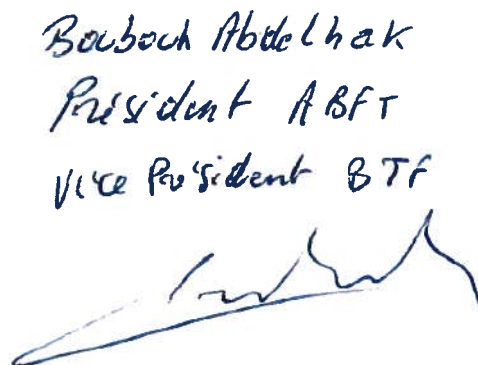 Boubouh Abdelhak
Président ABFT
Vice Président BTF